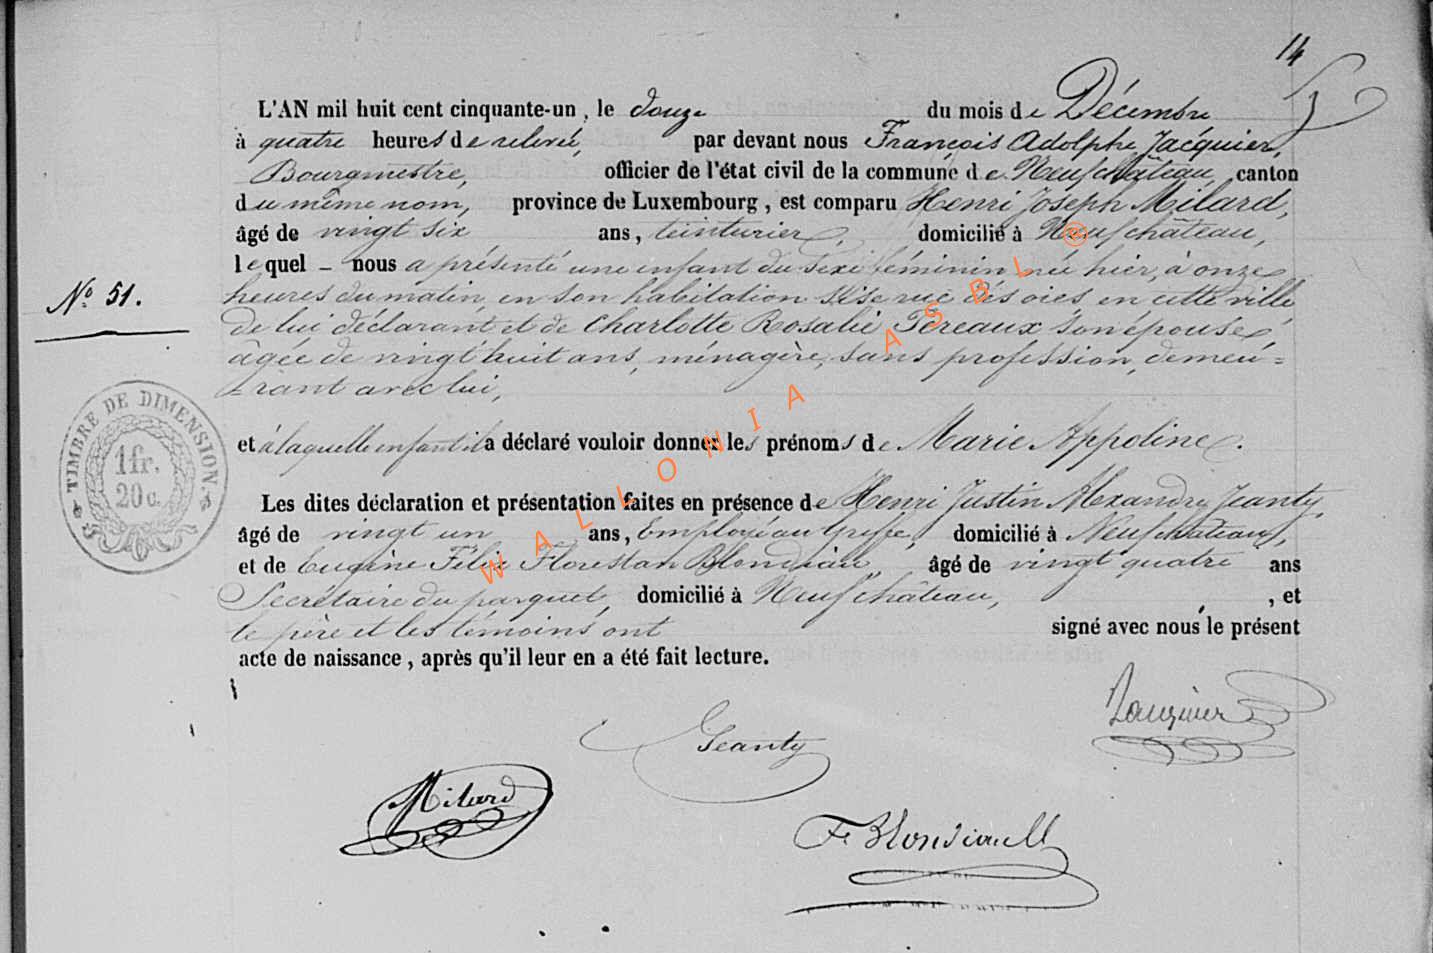 14
L'AN mil huit cent cinquante-un, le douze du mois de Décembre
à quatre heures de relevée, par devant nous François Adolphe Jacquier,
Bourgmestre, officier de l'état civil de la commune de Neufchâteau, canton
du même nom, province de Luxembourg, est comparu Henri Joseph Milard,
âgé de vingt six ans, teinturier, domicilié à Neufchâteau,
lequel – nous a présenté une enfant du sexe féminin née hier, à onze
N° 51.
heures du matin, en son habitation sise rue des oies en cette ville
de lui déclarant et de Charlotte Rosalie Féreaux son épouse
âgée de vingt huit ans, ménagère, sans profession, demeu=
=rant avec lui,
et à laquelle enfant il a déclaré vouloir donner les prénoms de Marie Appoline.
TIMBRE DE DIMENSION.
1 fr.
20 c.
Les dites déclaration et présentation faites en présence de Henri Justin Alexandre Jeanty,
âgé de vingt un ans, Employé au Greffe, domicilié à Neufchâteau,
et de Eugène Félix Florestan Blondiau, âgé de vingt quatre ans
Secrétaire du parquet, domicilié à Neufchâteau, , et
le père et les témoins ont signé avec nous le présent
acte de naissance, après qu'il leur en a été fait lecture.
Jacquier
Jeanty
Milard
WALLONIA ASBL ®